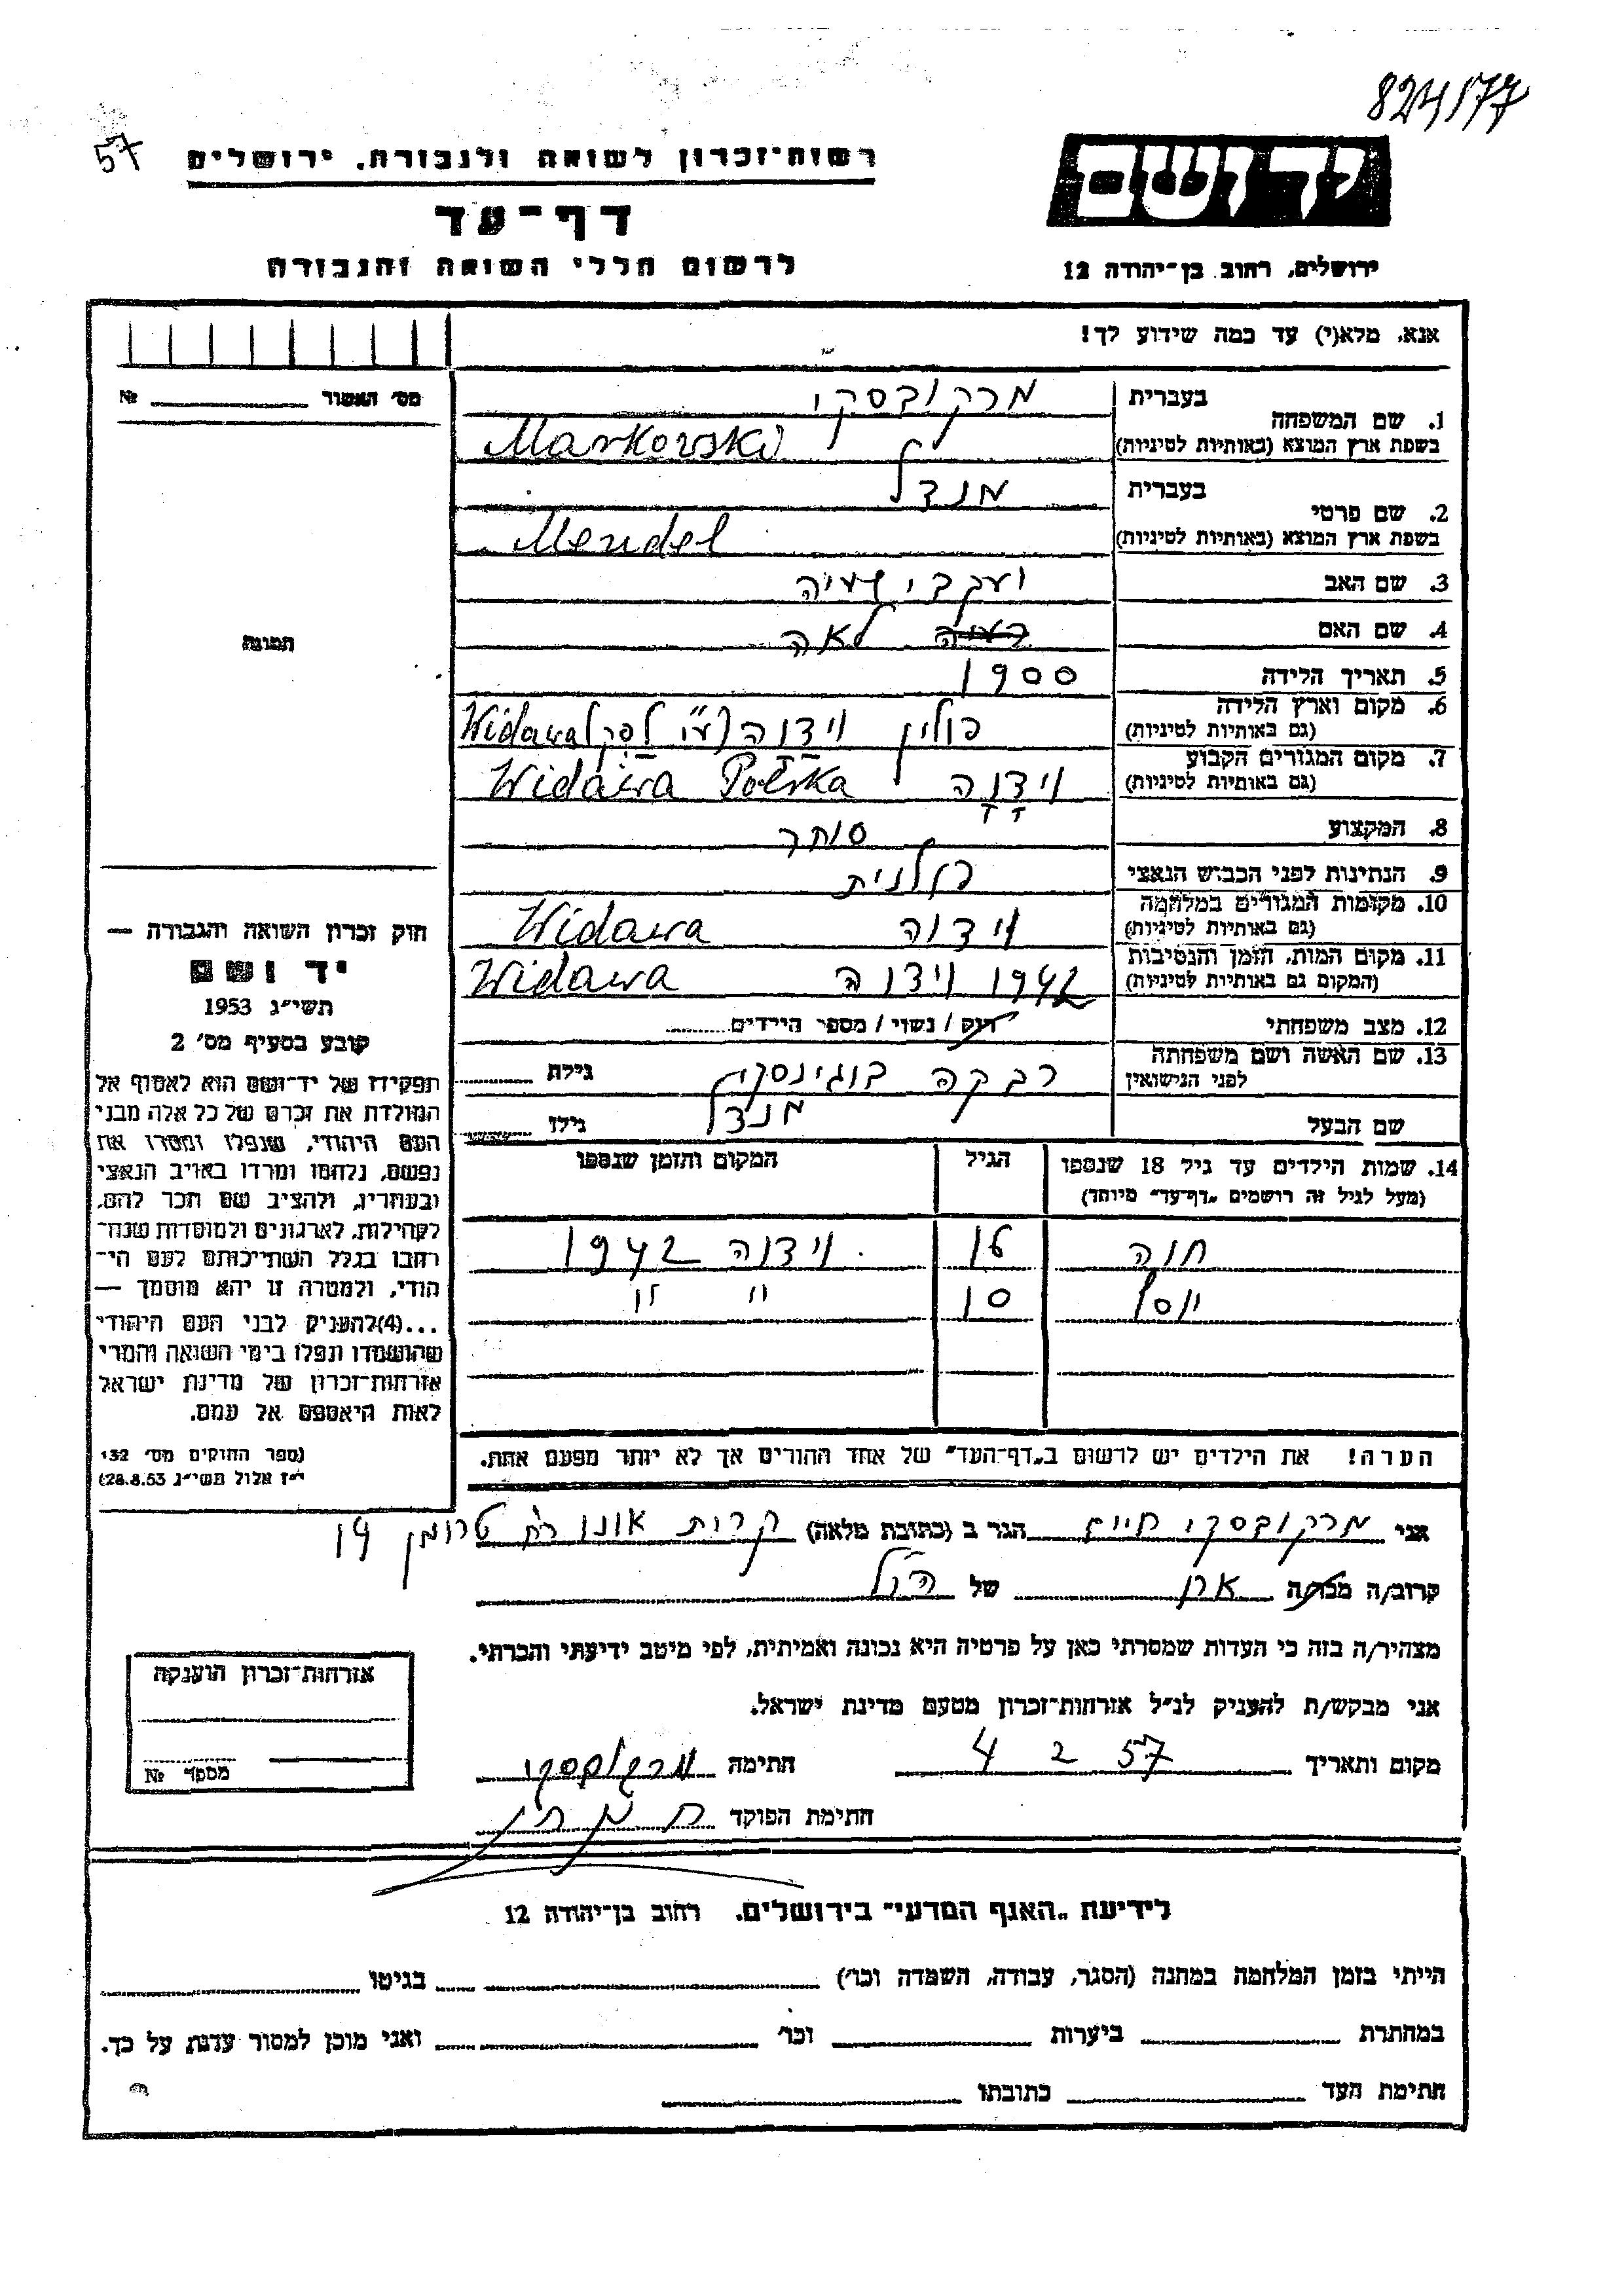 824/77
57
רשות-זכרון לשואה ולגבורה, ירושלים
יד ושם
דף-עד
לרשום חללי השואה והגבורה
ירושלים, רחוב בן-יהודה 12
אנא, מלא(י) עד כמה שידוע לך!
מס' האשור № 
1. שם המשפחה בעברית מרקובסקי
בשפת ארץ המוצא (באותיות לטיניות) Markowski
2. שם פרטי בעברית מנדל
בשפת ארץ המוצא (באותיות לטיניות) Mendel
3. שם האב יעקב ישעיה
4. שם האם לאה
תמונה
5. תאריך הלידה 1900
6. מקום וארץ הלידה (גם באותיות לטיניות) פולין וידוה Widawa
7. מקום המגורים הקבוע (גם באותיות לטיניות) וידוה Widawa Polska
8. המקצוע סוחר
9. הנתינות לפני הכבוש הנאצי פולנית
10. מקומות המגורים במלחמה (גם באותיות לטיניות) וידוה Widawa
11. מקום המות, הזמן והנסיבות (המקום גם באותיות לטיניות) 1942 וידוה Widawa
12. מצב משפחתי רווק / נשוי / מספר הילדים
13. שם האשה ושם משפחתה לפני הנישואין רבקה בוגינסקי גילה
שם הבעל מנדל גילו
14. שמות הילדים עד גיל 18 שנספו הגיל המקום והזמן שנספו
(מעל לגיל זה רושמים „דף-עד" מיוחד)
חוה 16 וידוה 1942
יוסף 10 " "
הערה! את הילדים יש לרשום ב„דף-העד" של אחד ההורים אך לא יותר מפעם אחת.
חוק זכרון השואה והגבורה —
יד ושם
תשי"ג 1953
קובע בסעיף מס' 2
תפקידו של יד-ושם הוא לאסוף אל
המולדת את זכרם של כל אלה מבני
העם היהודי, שנפלו ומסרו את
נפשם, נלחמו ומרדו באויב הנאצי
ובעוזריו, ולהציב שם וזכר להם,
לקהילות, לארגונים ולמוסדות שנח-
רבו בגלל השתייכותם לעם הי-
הודי, ולמטרה זו יהא מוסמך —
...(4)להעניק לבני העם היהודי
שהושמדו ונפלו בימי השואה והמרי
אזרחות-זכרון של מדינת ישראל
לאות היאספם אל עמם.
(ספר החוקים מס' 132
י"ז אלול תשי"ג 28.8.53)
אני מרקובסקי חיים הגר ב (כתובת מלאה) קרית אונו רח' טרומן 19
קרוב/ה מכר/ה אח של הנ"ל
מצהיר/ה בזה כי העדות שמסרתי כאן על פרטיה היא נכונה ואמיתית, לפי מיטב ידיעתי והכרתי.
אני מבקש/ת להעניק לנ"ל אזרחות-זכרון מטעם מדינת ישראל.
מקום ותאריך 4 2 57 חתימה מרקובסקי
חתימת הפוקד
אזרחות-זכרון הוענקה
מספר №
לידיעת „האגף המדעי" בירושלים. רחוב בן-יהודה 12
הייתי בזמן המלחמה במחנה (הסגר, עבודה, השמדה וכו') בגיטו
במחתרת ביערות וכו' ואני מוכן למסור עדות על כך.
חתימת העד כתובתו